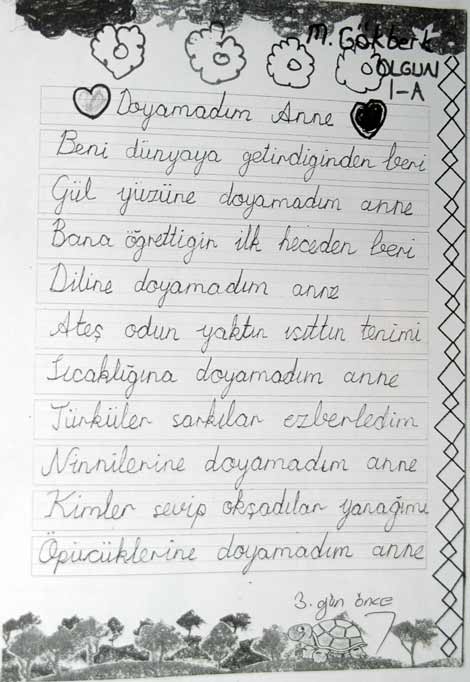 M. Gökberk
OLGUN
1-A
Doyamadım Anne
Beni dünyaya getirdiginden beri
Gül yüzüne doyamadım anne
Bana öğrettigin ilk heceden beri
Diline doyamadım anne
Ateş odun yaktın ısıttın tenimi
Sıcaklığına doyamadım anne
Türküler sarkılar ezberledim
Ninnilerine doyamadım anne
Kimler sevip okşadılar yanağımı
Öpücüklerine doyamadım anne
3. gün önce